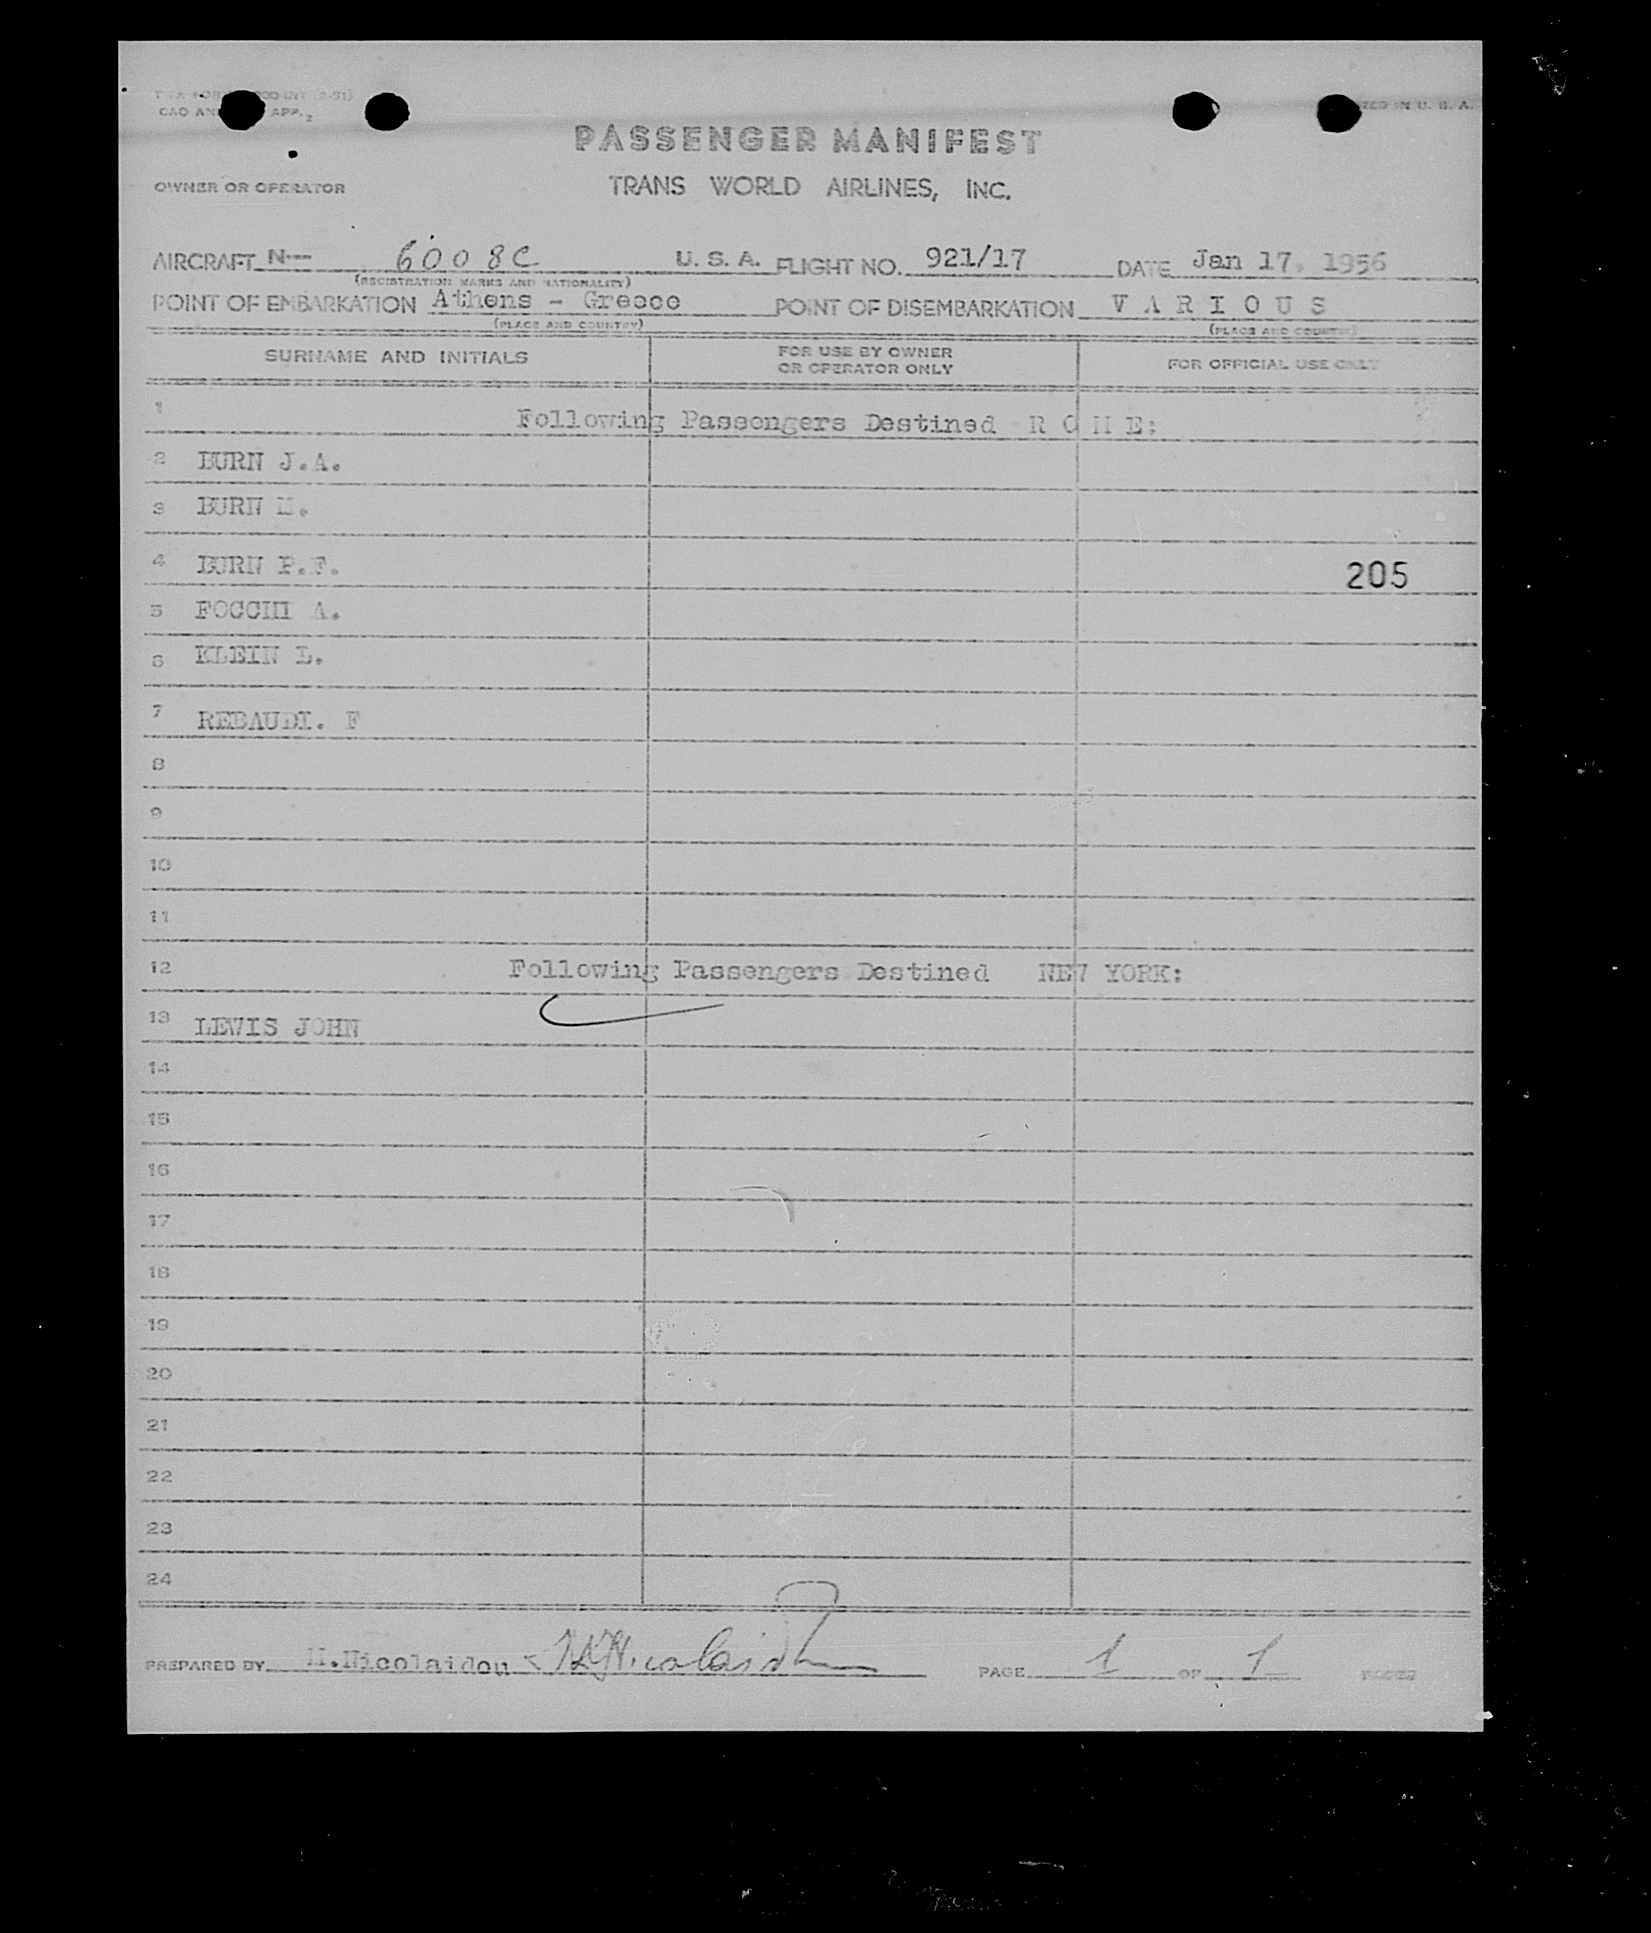 CAO AN APP. 2
IN U. S. A.
PASSENGER MANIFEST
OWNER OR OPERATOR TRANS WORLD AIRLINES, INC.
AIRCRAFT N--- 6008C U. S. A. FLIGHT NO. 921/17 DATE Jan 17. 1956
(REGISTRATION MARKS AND NATIONALITY)
POINT OF EMBARKATION Athens - Greece POINT OF DISEMBARKATION V A R I O U S
(PLACE AND COUNTRY) (PLACE AND COUNTRY)
SURNAME AND INITIALS FOR USE BY OWNER OR OPERATOR ONLY FOR OFFICIAL USE ONLY
1 Following Passengers Destined R O M E:
2 BURN J.A.
3 BURN M.
4 BURN P.F. 205
5 FOCCHI A.
6 KLEIN L.
7 REBAUDI. F
8
9
10
11
12 Following Passengers Destined NEW YORK:
13 LEWIS JOHN
14
15
16
17
18
19
20
21
22
23
24
PREPARED BY M.Nicolaidou PAGE 1 OF 1 PAGES